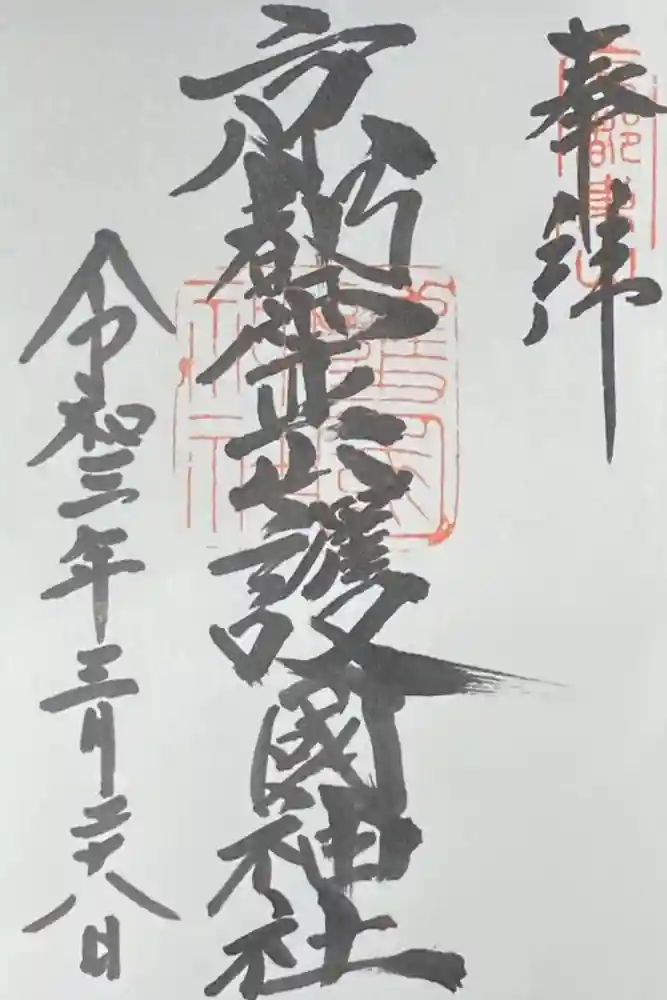 奉拝
京都霊山護國神社
令和三年三月二十八日